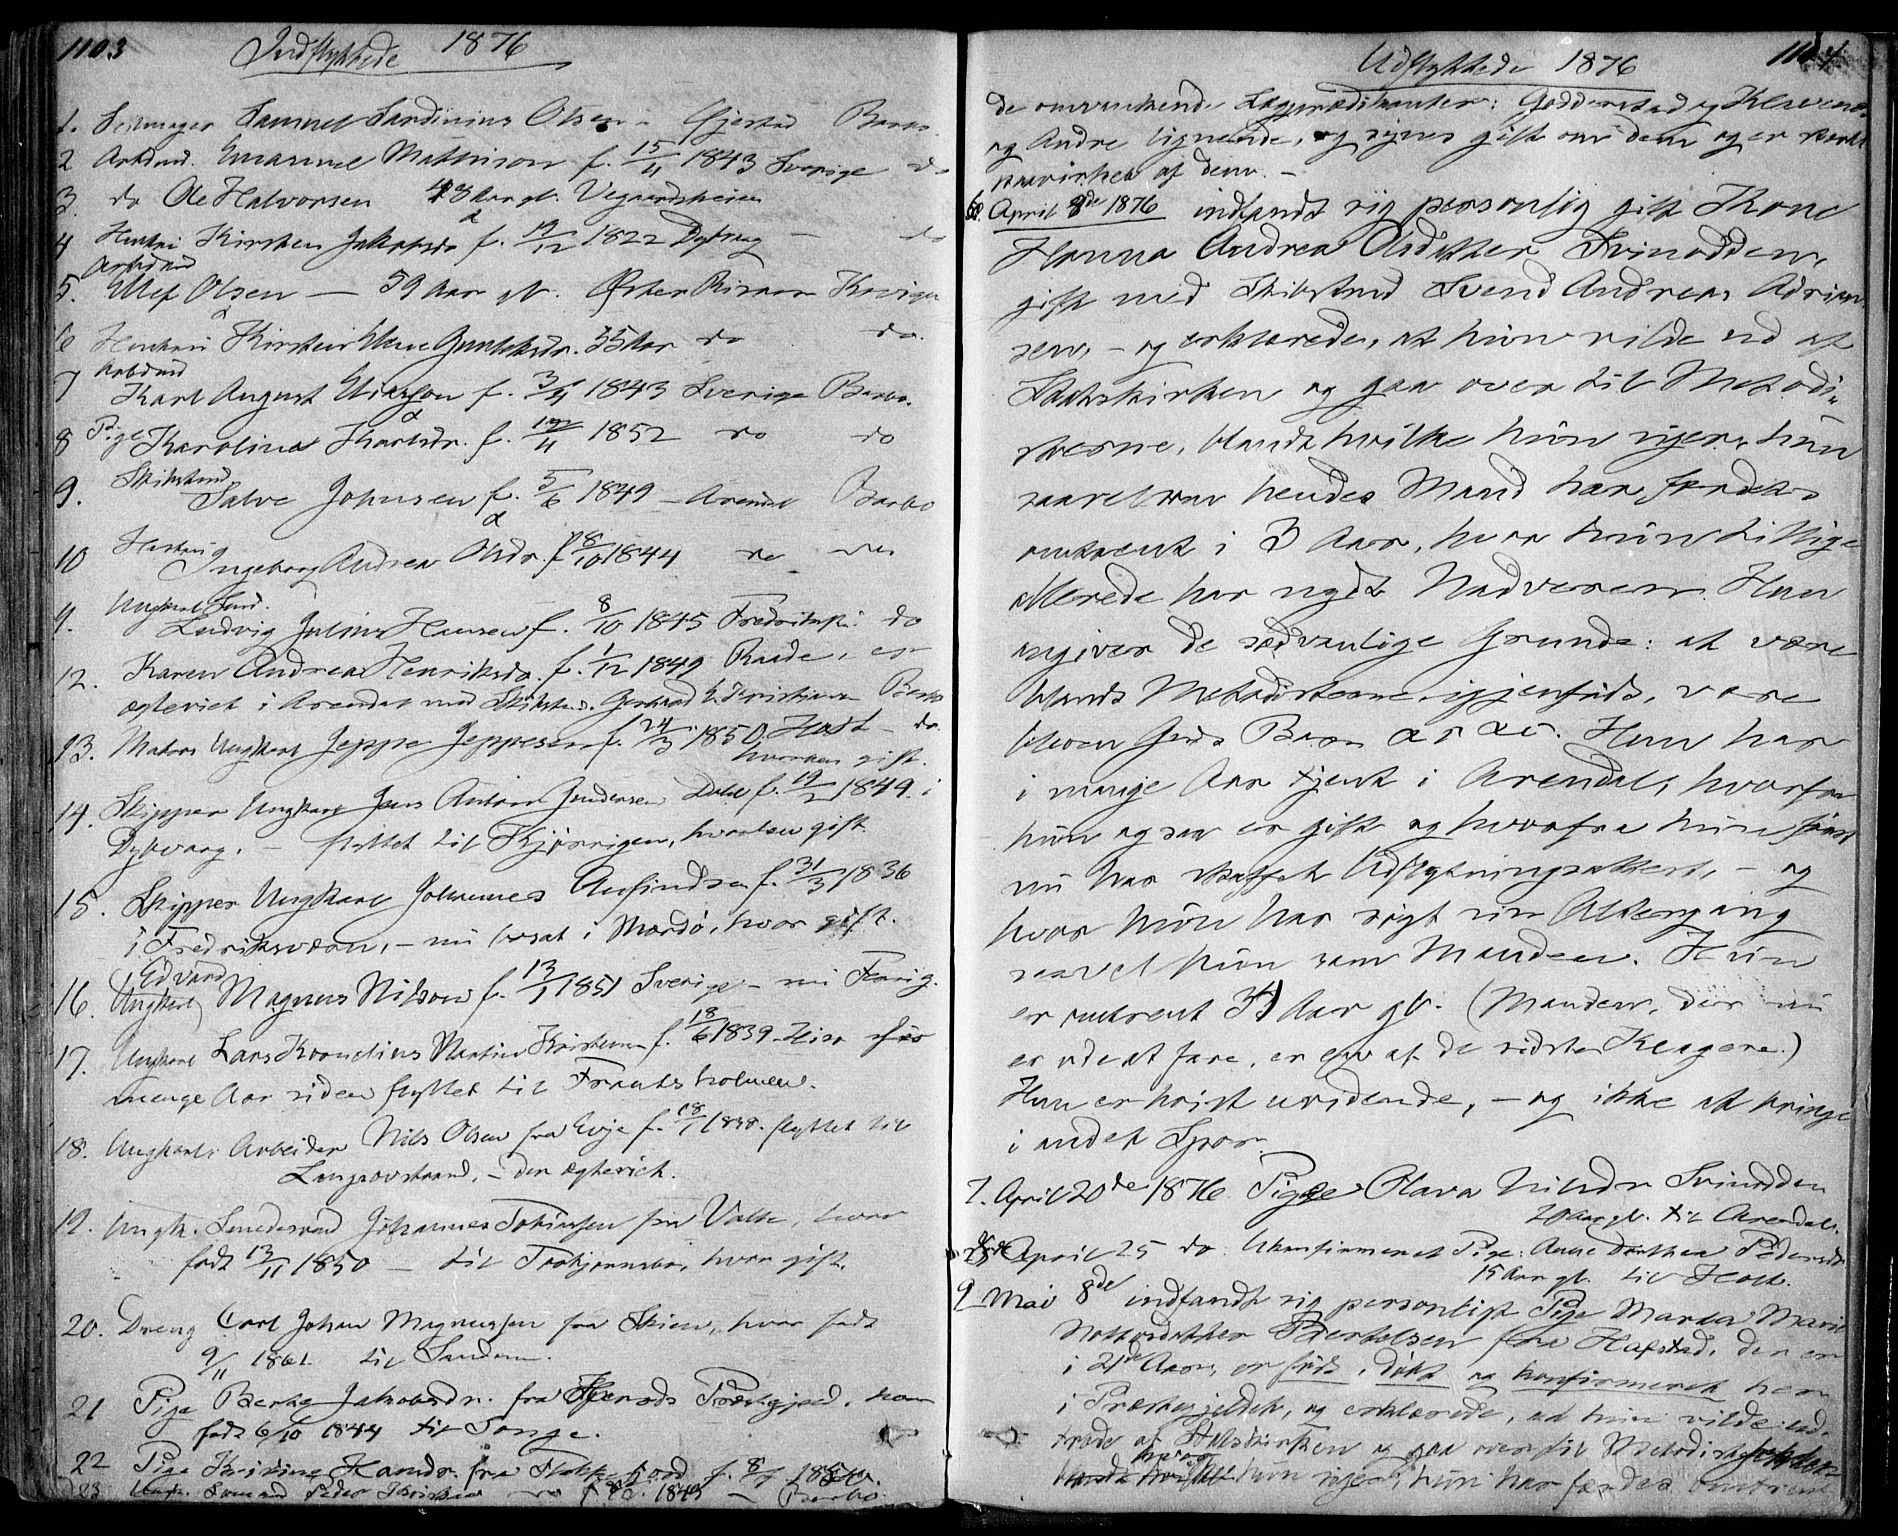 1103
Indflyttede 1876
1. Seilmager Samuel Sardinius Olsen - Øjestad Barbo.
2 Arbdmd. Emanuel Mattinson f. 15/11 1843 Sverige do
3. do Ole Halvorsen 43 Aar gl. Vegaardsheien
4 Hustru Kirsten Jakobsdr f. 19/12 1822 Dybvaag - do
Arbdmd
5. Ellef Olsen - 59 Aar gl. Øster Risøer
6 Hustru Kirsten Gundersdr. 55 Aar do do.
Arbdmd
7 Karl August f. 3/4 1843 Sverige Barbo.
8 Pige Karolina Karlsdr. f. 1852 do do
Skibstmd
9. Salve Johnsen f. 5/6 1849 - Arendal Barbo
Hustru
10 Ingeborg Andrea Olsdr. f. 18/10 1844 do do
Ungkarl Smd.
Ludvig Julius Hansen f. 8/10 1845 do
12. Karen Andrea Henriksdr. f. 1/12 1849 Raade, er
ægteviet i Arendal med Skibstmd. Gerhard Kristiansen Barbo
13. Matros Ungkarl Jeppe Jeppesen f. 24/3 1850, Holt - do.
hvorhen gift.
14. Skipper Ungkarl Jens Anton Gundersen Dahl f. 19/2 1849 i
Dybvaag. - flyttet til Kjørvigen, hvorhen gift.
15. Skipper Ungkarl Johannes f. 31/3 1836
i Fredriksværn, - nu bosat i Mærdø, hvor gift.
Edvard
16. Ungkarl Magnus Nilson f. 13/1 1851 Sverige - nu
17. Ungkarl Lars Martin Kristensen f. 18/6 1839 - Hisø
mange Aar siden flyttet til
18. Ungkarl Arbeider Nils Olsen fra Evje f. 18/1 1838. flyttet til
- der ægteviet.
19. Ungk. Smedesvend Johannes fra Valle, hvor
født 13/11 1850 - til hvor gift.
20. Dreng Carl Johan Magnussen fra Skien, hvor født
9/11 1861 til
21 Pige Berthe Jakobsdr. fra Præstegjeld, hvor
født 6/10 1844 til Songe.
22 Pige Kristine Hansdr. fra f. 8/7
23 Peder 1843 - Barbo

Udflyttede 1876
1104
de omvankende Lægprædikanter: Godderstad og
og Andre lignende, og synes gift om dem og er
paavirket af dem. -
6. April 8de 1876 indfandt sig personlig gift Kone
Hanna Andrea Olsdatter Svinodden,
gift med Skibstmd Svend Andreas Adrian-
sen, - og erklærede, at hun vilde ud af
Statskirken og gaa over til Metodi-
sterne, blandt hvilke hun siger, hun
saavelsom hendes Mand har færdets
omtrent i 3 Aar, hvor hun tillige
allerede har nydt Nadveren. Hun
angiver de sædvanlige Grunde: at være
blandt Metodisterne igjenfødt, være
bleven Guds Barn &c. Hun har
i mange Aar tjent i Arendal, hvorfra
hun ogsaa er gift og hvorfra hun først
nu har skaffet Udflytningsattest, - og
hvor hun har søgt sin Altergang
saavel hun som Manden. Hun
er omtrent Aar gl. (Manden, der nu
er ude at fare, er en af de sidste Klagere.)
Hun er høist uvidende, - og ikke at bringe
i andet Spor.
7. April 20de 1876. Pige Olava Nilsdr Svinodden
20 Aar gl. til Arendal.
8 April 25 do Ukonfirmeret Pige: Anne Dorthea Pedersdr
15 Aar gl. til Holt.
9 Mai 8de indfandt sig personligt Pige Marta Marie
fra Hafstad, der er
i 21de Aar, er født, døbt og konfirmeret her
i Præstegjeldet, og erklærede, at hun vilde ud-
træde af Statskirken og gaa over til
hun siger, hun har færdes omtrent